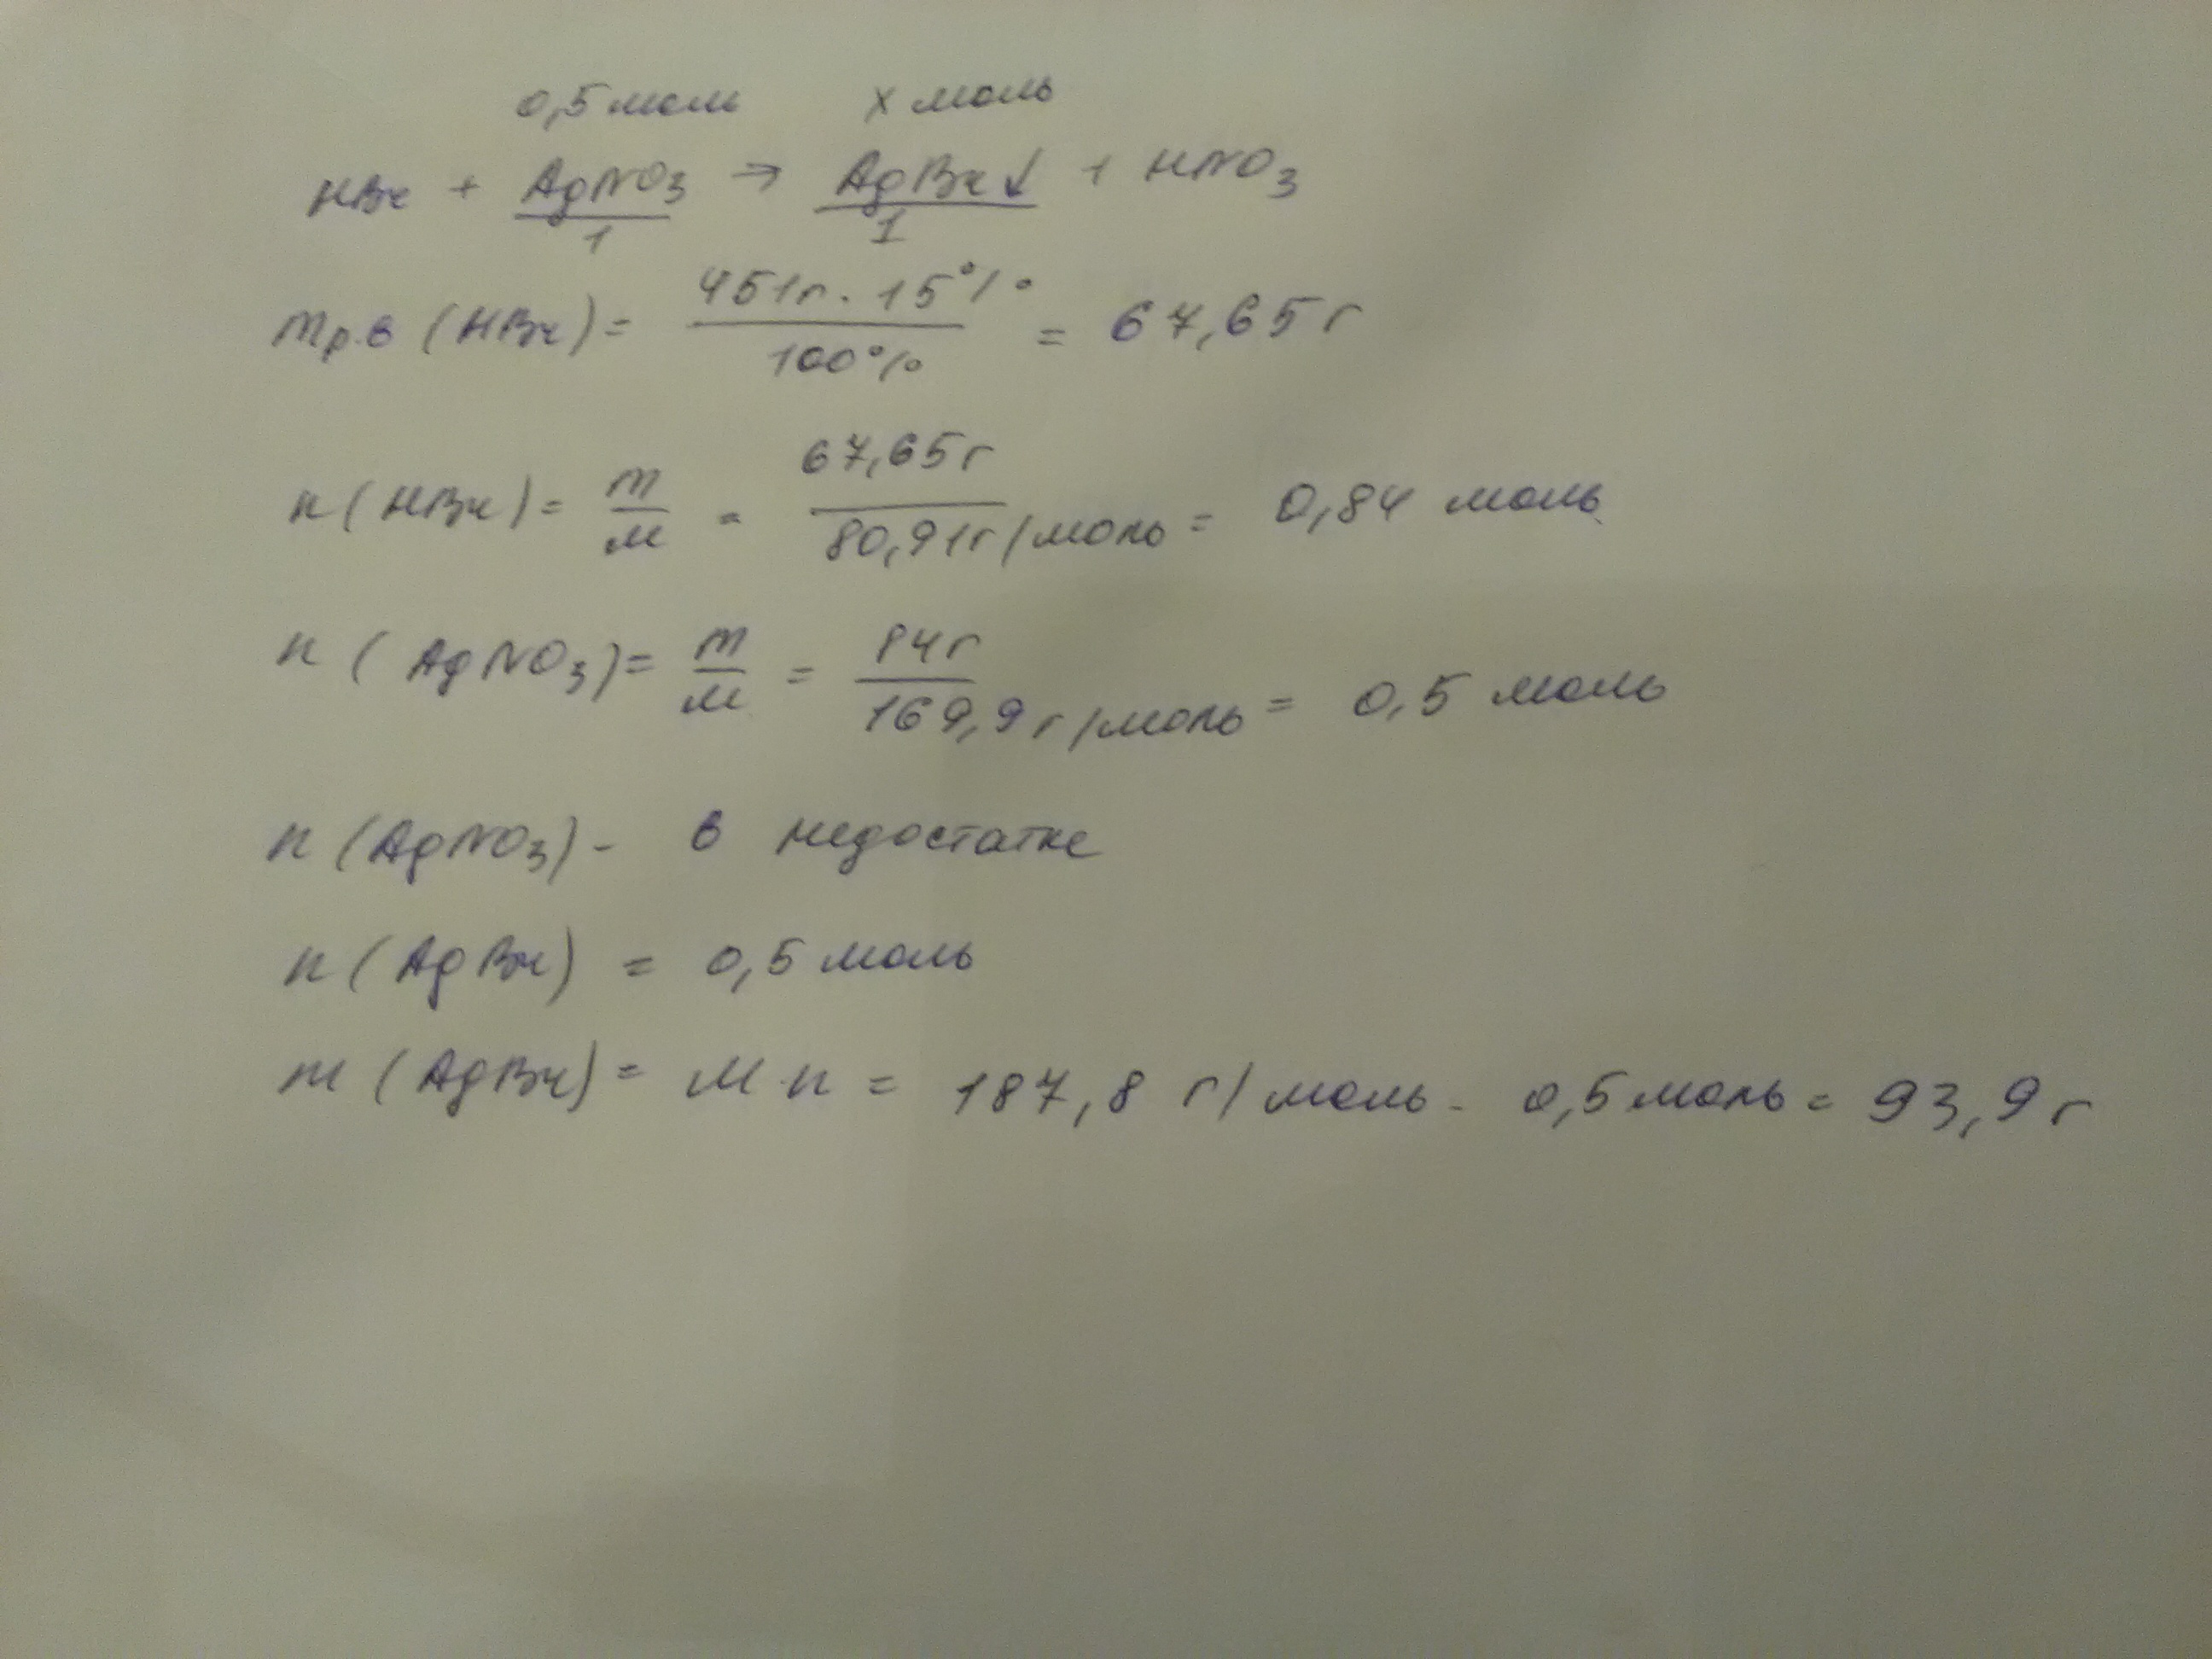 0,5 моль x моль
HBr + AgNO3 → AgBr↓ + HNO3
1 1
mр.в (HBr) = 451г · 15% / 100% = 67,65 г
n (HBr) = m/M = 67,65 г / 80,91 г/моль = 0,84 моль
n (AgNO3) = m/M = 84 г / 169,9 г/моль = 0,5 моль
n (AgNO3) - в недостатке
n (AgBr) = 0,5 моль
m (AgBr) = M · n = 187,8 г/моль · 0,5 моль = 93,9 г